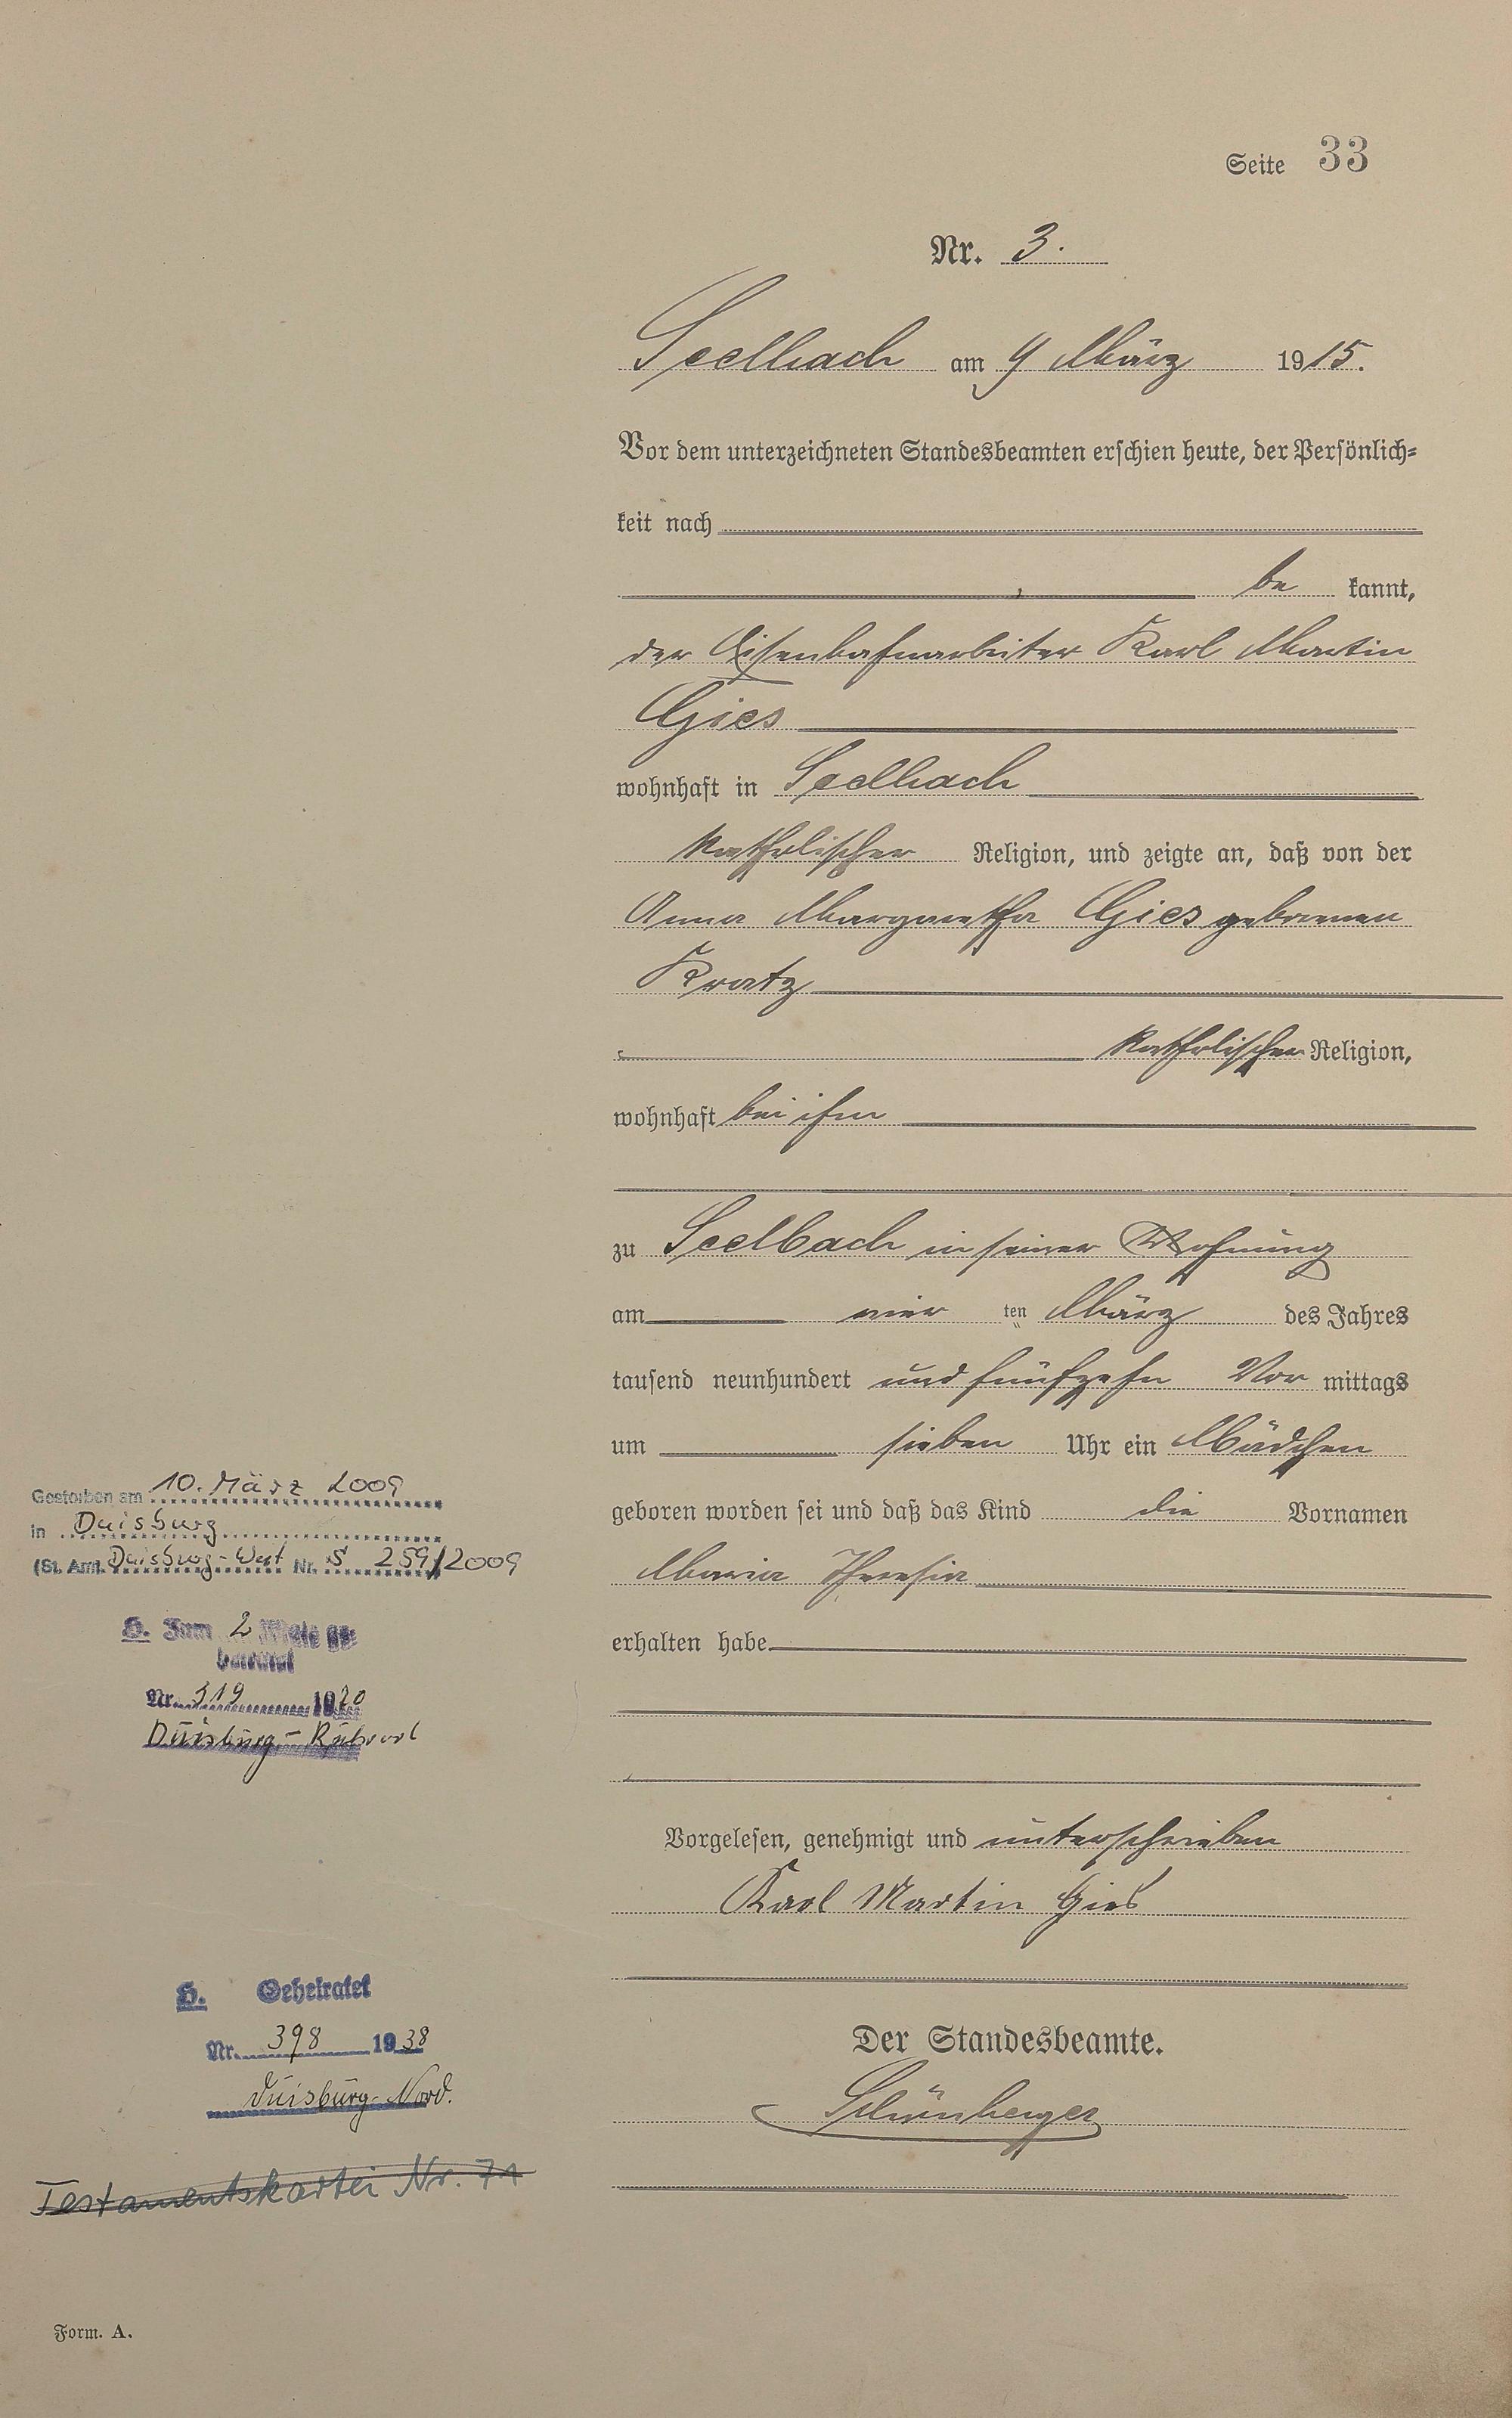 Seite 33
Nr. 3.
Seelbach am 9 März 1915.
Vor dem unterzeichneten Standesbeamten erschien heute, der Persönlich=
keit nach
be kannt,
der Eisenbahnarbeiter Karl Martin
Gies
wohnhaft in Seelbach
katholischer Religion, und zeigte an, daß von der
Anna Margaretha Gies geborenen
Kratz
katholischer Religion,
wohnhaft bei ihm
zu Seelbach in seiner Wohnung
am vier ten März des Jahres
tausend neunhundert und fünfzehn Vor mittags
um sieben Uhr ein Mädchen
geboren worden sei und daß das Kind die Vornamen
Maria Theresia
erhalten habe.
Vorgelesen, genehmigt und unterschrieben
Karl Martin Gies
Der Standesbeamte.
Gestorben am 10. März 2009
in Duisburg
(St. Amt. Duisburg-West Nr. S 259/2009
H. Zum 2 Male ge=
heiratet
Nr. 319 19
Duisburg-Ruhrort
H. Geheiratet
Nr. 398 1938
Duisburg-Nord.
Testamentskartei Nr. 71
Form. A.